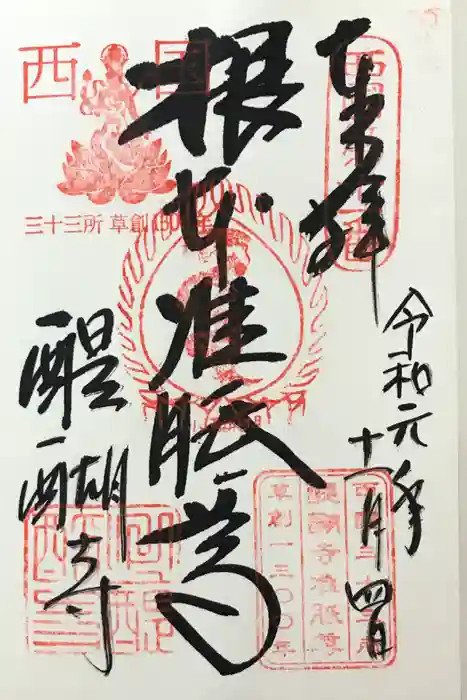 奉拝
令和元年
十一月四日
根本准胝尊
醍醐寺
西国
三十三所 草創1300年
西国三十三所
醍醐寺准胝尊
草創一三〇〇年